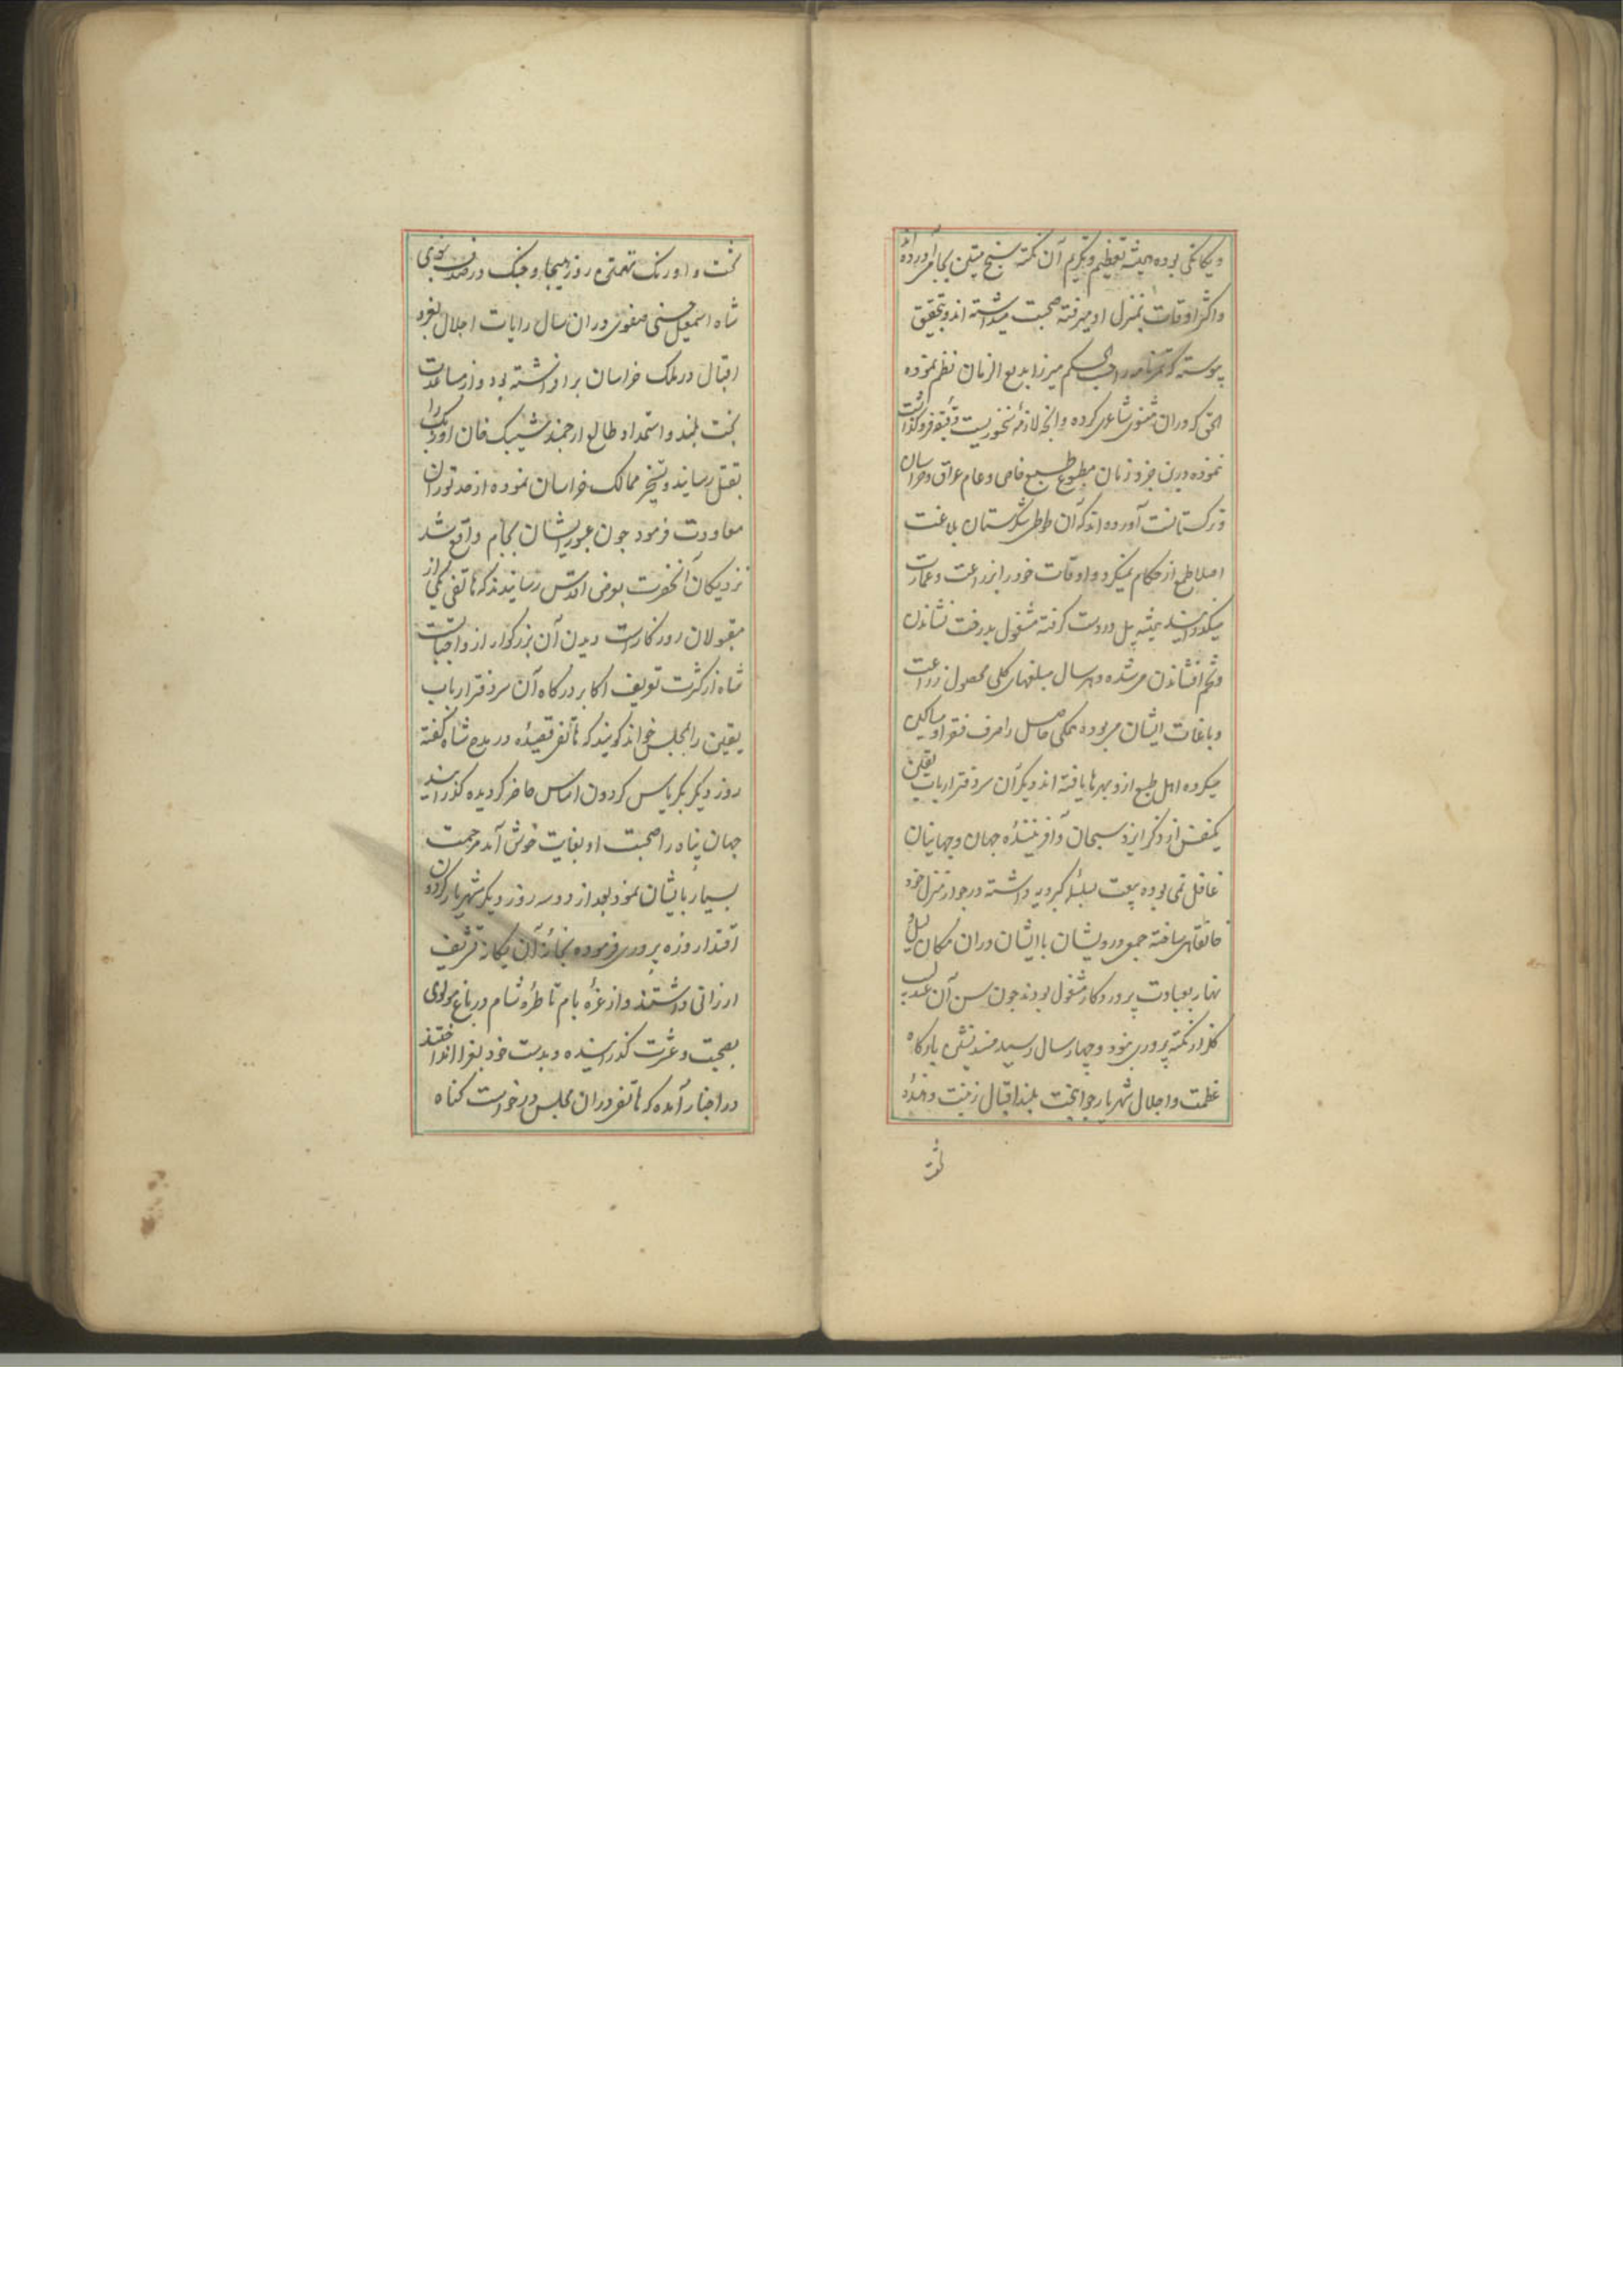 ویکانکی بوده همیشه تعظیم و تکریم آن نکته سنج متین بجا می آورده اند
واکثر اوقات بمنزل او میرفته صحبت میداشته اند و بتحقیق
پیوسته که تمرنامه را حسب الحکم میرزا بدیع الزمان نظم نموده
الحق که دران مثنوی شاعری کرده وانچه لازمهٔ سخنوریست دقیقه فروکذاشت
نموده درین جزو زمان مطبوع طبع خاص و عام عراق و خراسان
و ترکستانست آورده اند که آن طوطی شکرستان بلاغت
اصلا طمع از حکام نمیکرد و اوقات خود را از زراعت و عمارت
میکذرانید همیشه بیل در دست کرفته مشغول بدرخت نشاندن
وتخم افشاندن می شده و هر سال مبلغهای کلی محصول زراعت
وباغات ایشان می بوده تمکی حاصل را صرف فقرا و مساکین
میکرده اهل طبع ازو بهره ها یافته اند دیکر آن سر دفتر ارباب یقین
یکنفس از ذکر ایزد سبحان و آفرینندهٔ جهان و جهانیان
غافل نمی بوده بیعت بسلسلهٔ کبرویه داشته در جوار منزل خود
خانقاهی ساخته جمعی درویشان با ایشان دران مکان لیل و
نهار بعبادت پروردکار مشغول بودند چون سن آن عندلیب
کلزار نکته پروری بنود و چهار سال رسید مسند نشین بارکاه
عظمت و اجلال شهریار جوانبخت بلند اقبال زینت دهندهٔ
تخت و اورنک تهمتن روز هیجا و جنک در صدف نبوی
شاه اسمعیل حسینی صفوی دران سال رایات اجلال بفر و
اقبال در ملک خراسان برافراشته بود و از مساعدت
بخت بلند و استمداد طالع ارجمند شیبک خان اوزبک را
بقتل رسانید و تسخیر ممالک خراسان نموده از حد توران
معاودت فرمود چون عبور ایشان بجام واقع شد
نزدیکان آنحضرت بعرض اقدس رسانیدند که هاتفی یکی از
مقبولان روزکارست دیدن آن بزرکوار از واجباتست
شاه از کثرت تعریف اکابر درکاه آن سر دفتر ارباب
یقین را بمجلس خواند کویند که هاتفی قصیدهٔ در مدح شاه کفته
روز دیکر بکریاس کردون اساس حاضر کردیده کذرانید
جهان پناه را صحبت او بغایت خوش آمد مرحمت
بسیار بایشان نمود بعد از دو سه روز دیکر شهریار کردون
اقتدار ذره پروری فرموده بخانهٔ آن یکانه تشریف
ارزانی داشتند و از غرهٔ بام تا طرهٔ شام در باغ مولوی
بصحبت و عشرت کذرانیده و بدست خود بغرا انداختند
در اخبار آمده که هاتفی دران مجلس درخواست کناه